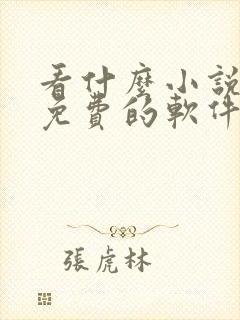 看什麼小說
免費的軟件
張虎林